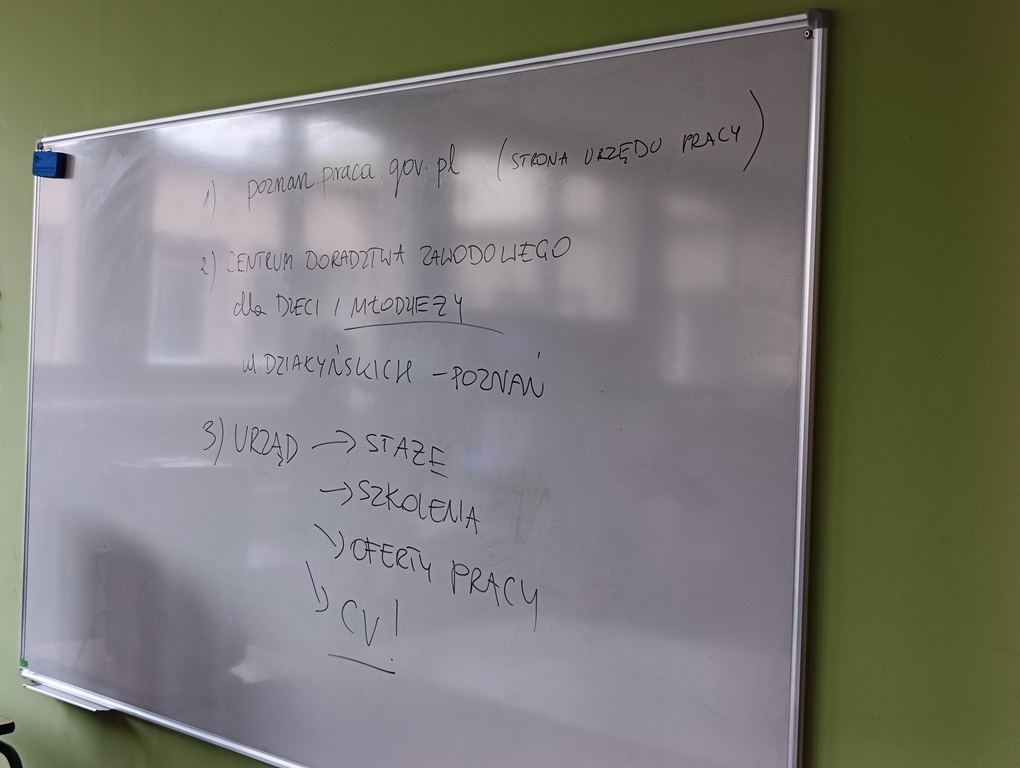 1) poznan.praca.gov.pl (STRONA URZĘDU PRACY)
2) CENTRUM DORADZTWA ZAWODOWEGO
dla DZIECI I MŁODZIEŻY
ul. DZIAŁYŃSKICH – POZNAŃ
3) URZĄD → STAŻE
→ SZKOLENIA
→ OFERTY PRACY
→ CV!